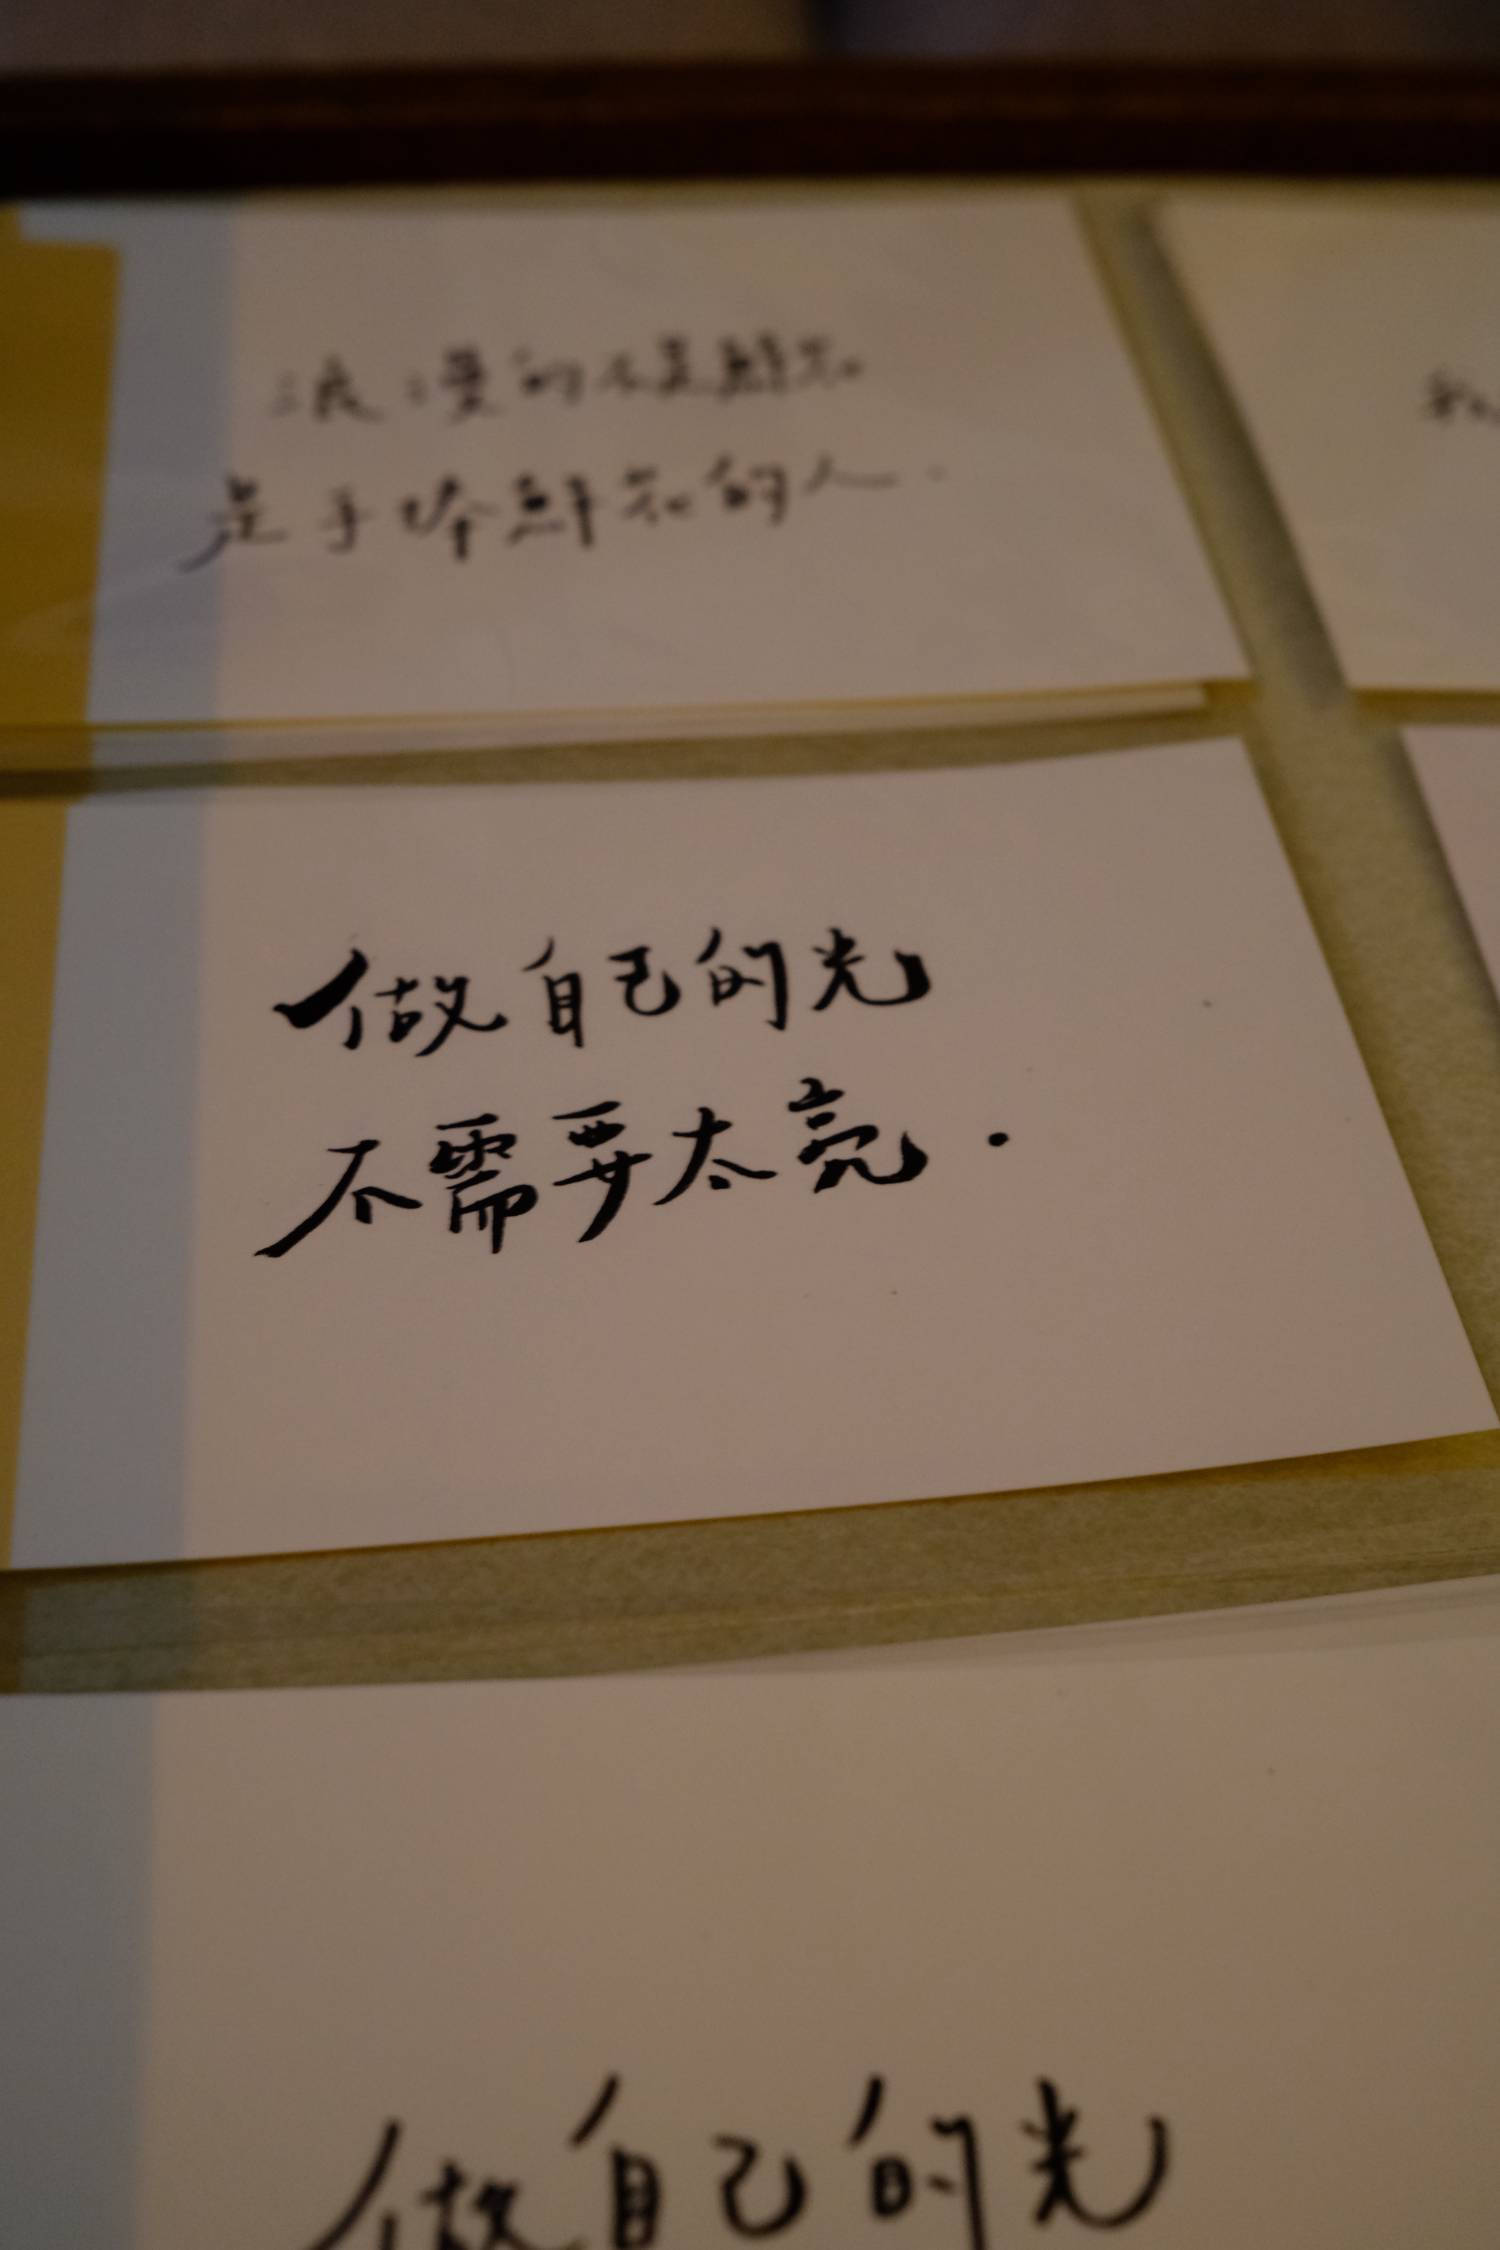 浪漫的不是鲜花
是手捧鲜花的人.
做自己的光
不需要太亮.
做自己的光